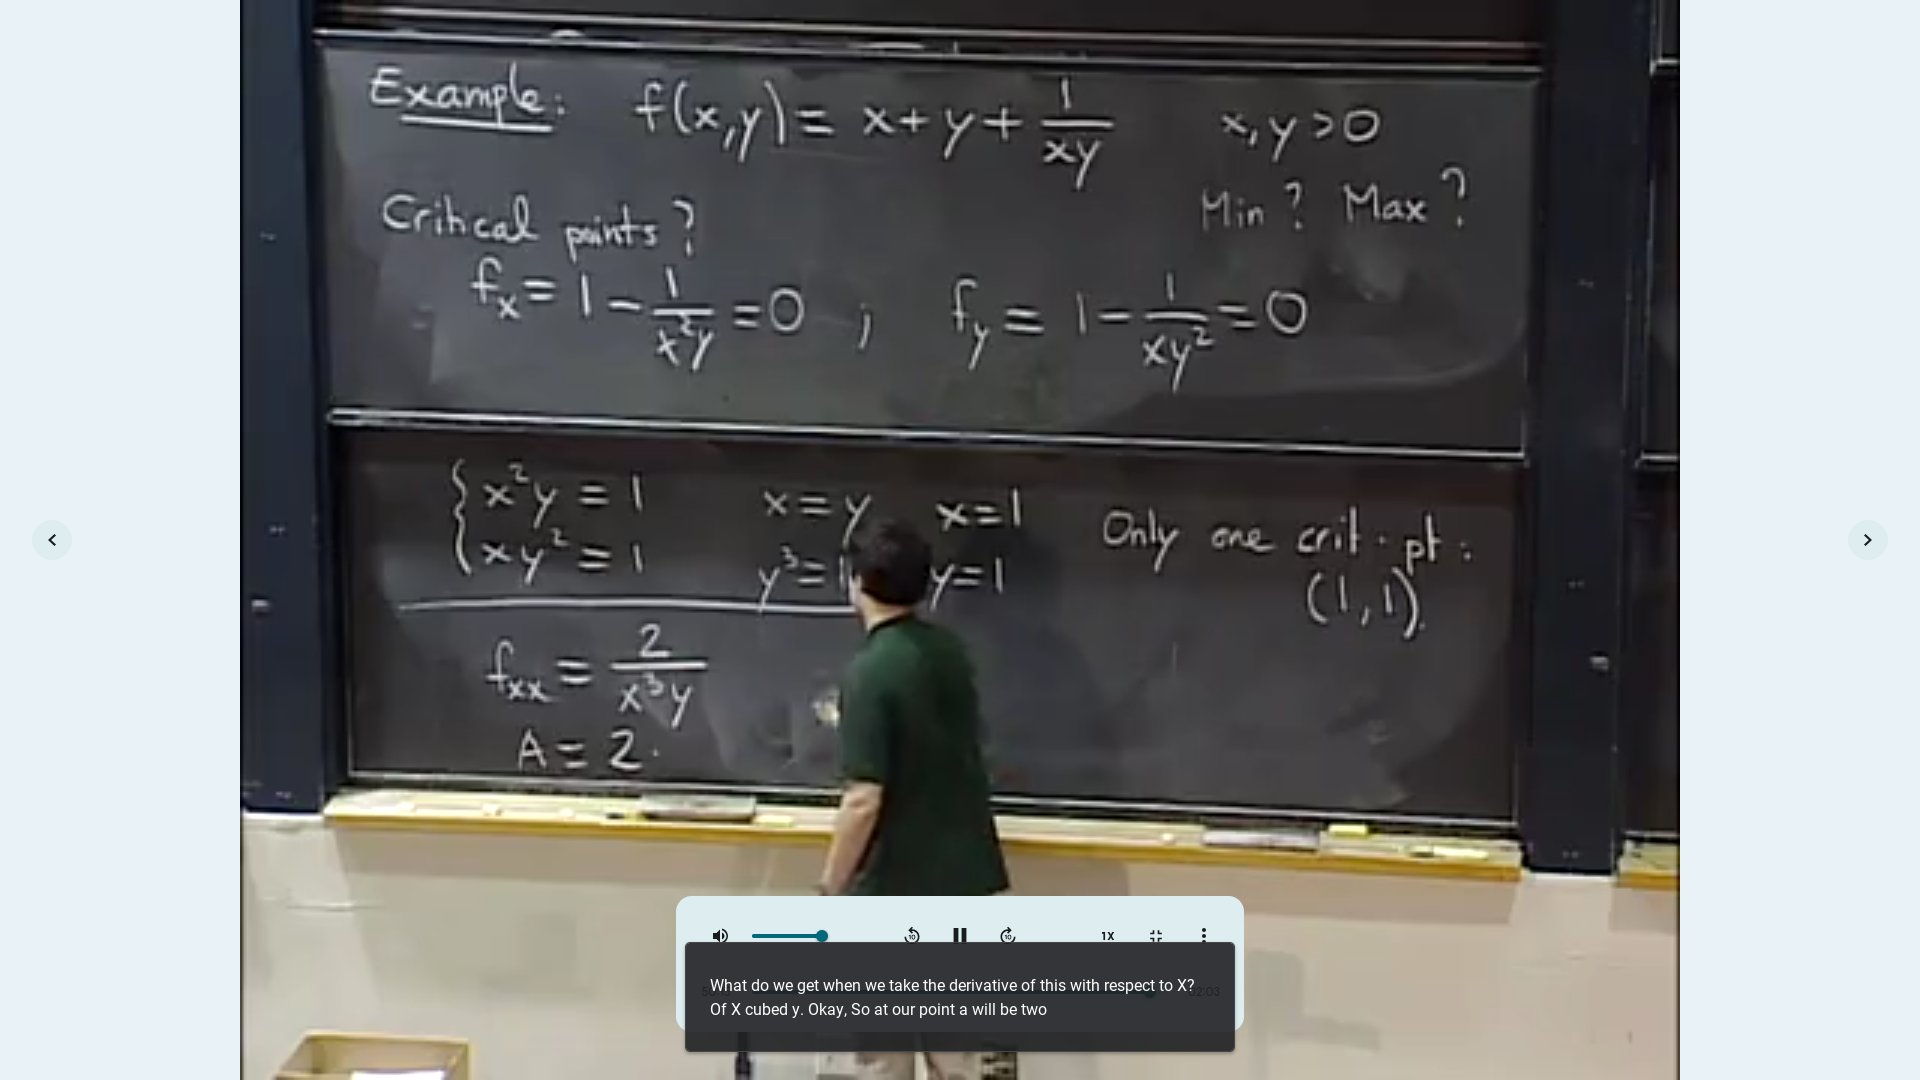 Example: f(x,y) = x + y + 1/xy x, y > 0
Critical points? Min? Max?
fx = 1 - 1/x²y = 0 ; fy = 1 - 1/xy² = 0
x²y = 1 x = y x = 1 Only one crit. pt:
xy² = 1 y³ = 1 y = 1 (1,1).
fxx = 2/x³y
A = 2.
10 10 1X
What do we get when we take the derivative of this with respect to X?
Of X cubed y. Okay, So at our point a will be two